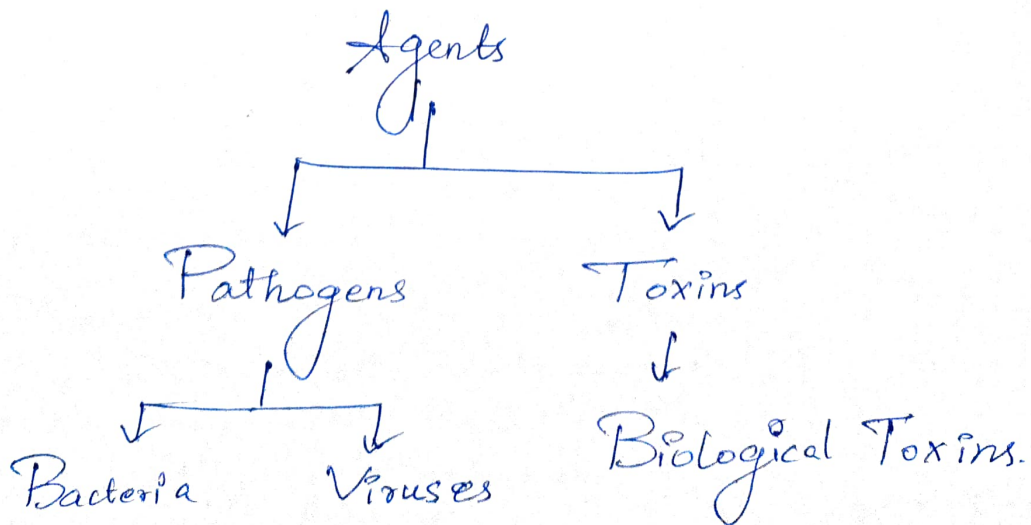 Agents
Pathogens Toxins
Bacteria Viruses Biological Toxins.